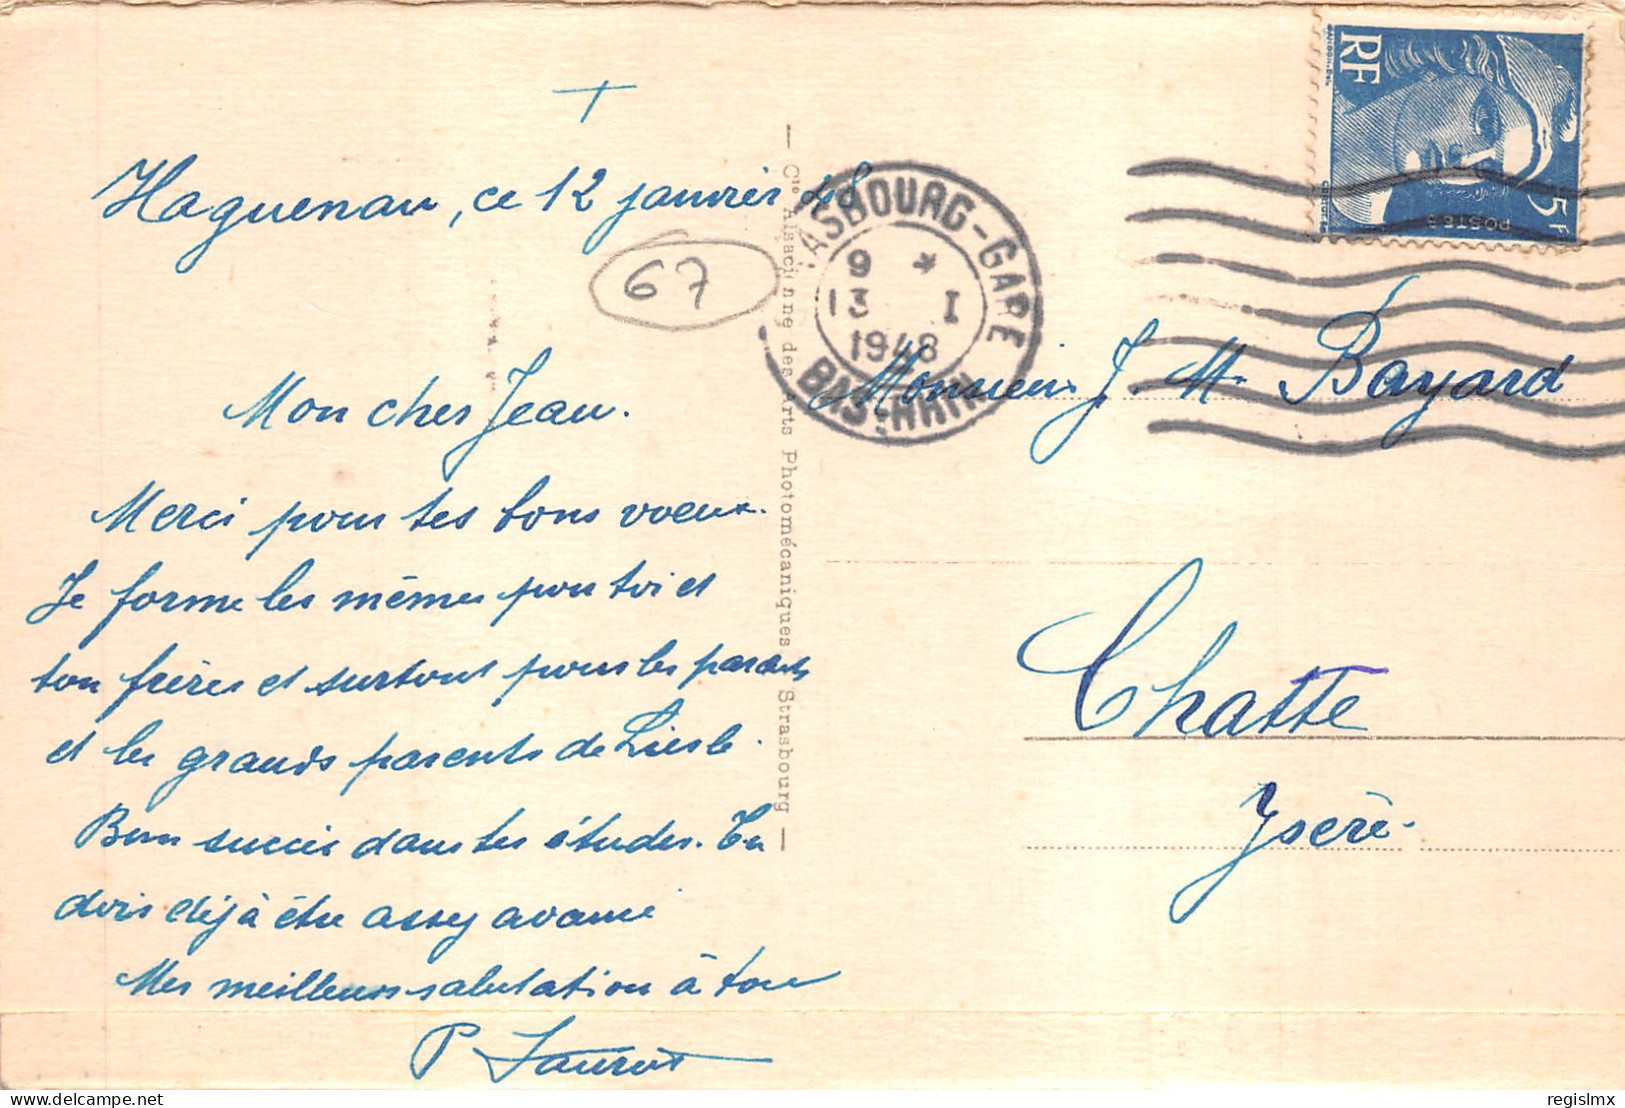 +
Haguenau, ce 12 janvier 48
67
Mon cher Jean.
Merci pour tes bons voeux.
Je forme les mêmes pour toi et
ton frère et surtout pour les parents
et les grands parents de Liesle.
Bon succès dans tes études. Tu
dois déjà être assez avancé
Mes meilleures salutations à tous
P
— Cie Alsacienne des Arts Photomécaniques Strasbourg —
RASBOURG-GARE
9 *
13 I
1948
BAS-RHIN
RF
5F
POSTES
Monsieur J. M. Bayard
Chatte
Isère.
delcampe.net
regislmx